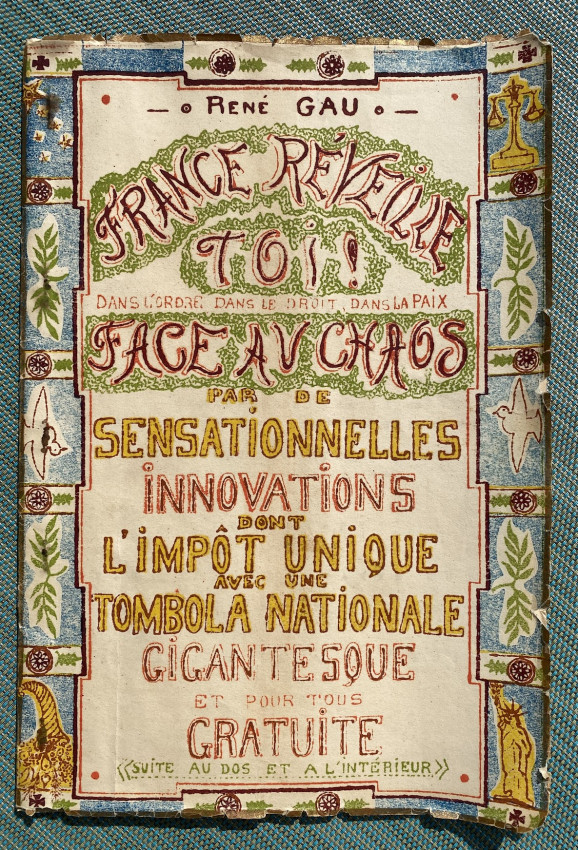 — ∘ RENÉ GAU ∘ —
FRANCE RÉVEILLE
TOI!
DANS L'ORDRE DANS LE DROIT, DANS LA PAIX
FACE AU CHAOS
PAR DE
SENSATIONNELLES
INNOVATIONS
DONT
L'IMPÔT UNIQUE
AVEC UNE
TOMBOLA NATIONALE
GIGANTESQUE
ET POUR TOUS
GRATUITE
<<SUITE AU DOS ET A L'INTÉRIEUR>>